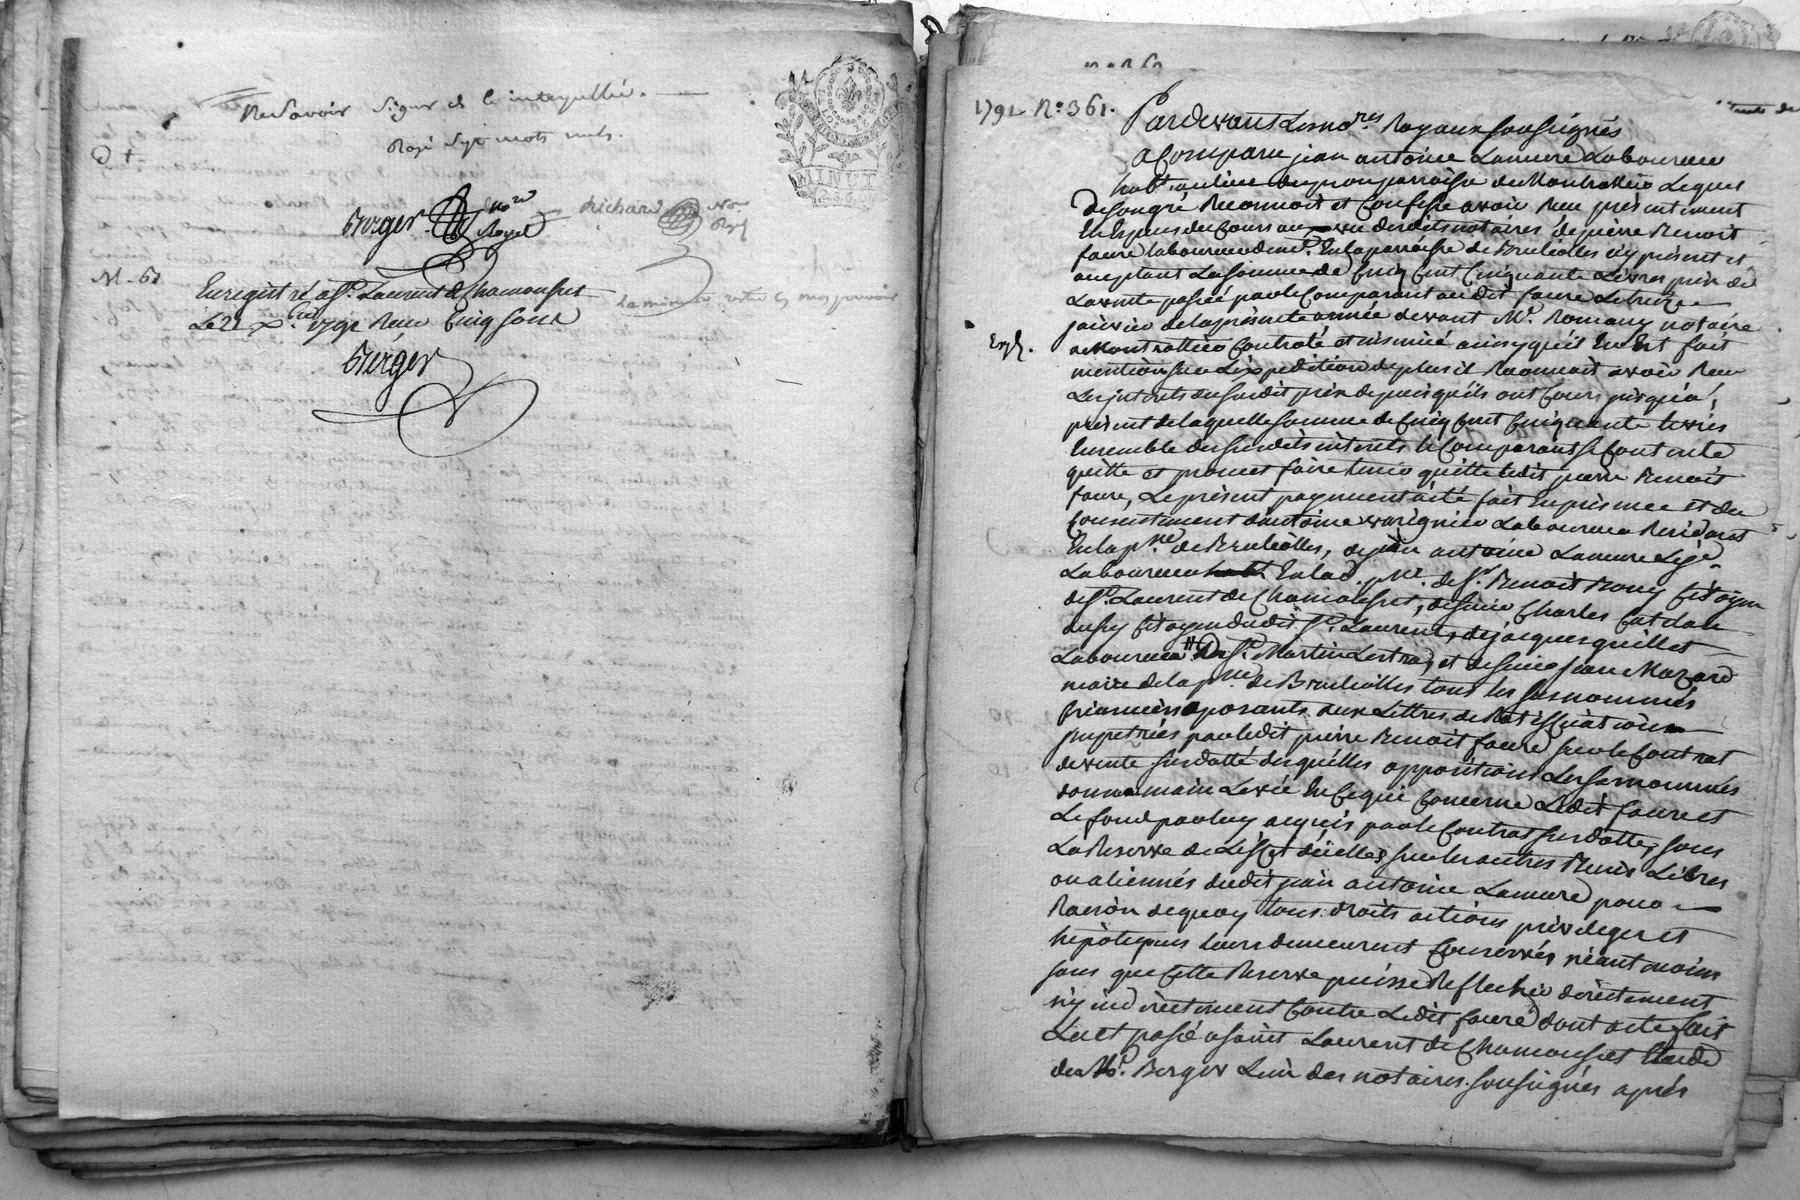 ne Savoir Signer de ce interpellé.
Rayé Sept mots nuls.
MINUT
Berger No.re Royal
Richard No.re Roy.l
M - 61
Enregistré a S.t Laurent de Chamousset
Le 21 x.bre 1792 Reçu Cinq Sous
La minute restée en mon pouvoir
Berger
1792 N.o 361.
Pardevant Les no.res Royaux Soussignés
a Comparu jean antoine Lamure Laboureur
hab.t au lieu du paroisse de Montrottier Lequel
De Son gré Reconnoit et Confesse avoir Reçu présentement
En Espèces du Cours au vu desdits notaires de pierre Benoit
faure laboureur dem.t En la parroisse de Brulliolles icy présent et
acceptant La Somme de Cinq Cent Cinquante Livres prix de
La vente passée par le Comparant au dit faure Le treize
janvier de la présente année devant M.e Romany notaire
a Montrottier Controlé et insinué ainsy qu'il En Est fait
Exp.
mention Sur L'éxpedition de plus il Reconnoit avoir Reçu
Les intérêts du Susdit prix depuis qu'ils ont Cours jusqu'à
présent de laquelle Somme de Cinq Cent Cinquante livres
Ensemble desdits intérêts le Comparant Se Contente
quitte et promet faire tenir quitte ledit pierre Benoit
faure, Le présent payement a été fait En présence et du
Consentement d'antoine Laboureur Résidant
En la p.sse de Brulliolles, de jean antoine Lamure
Laboureur En lad. p.sse de S.r Benoit Citoyen
de S.t Laurent de Chamousset, de Sieur Charles
Citoyen dudit S.t Laurent, de jacques quillet
Laboureur De S.t Martin Lestra, et de Sieur jean Mazard
maire de la p.sse de Brulliolles tous les Susnommés
Créanciers oposants aux Lettres de Ratiffication
impetrées par ledit pierre Benoit faure Sur le Contrat
de vente Susdatté desquélles oppositions Les Susnommés
donne main Levée En Ce qui Concerne Ledit faure et
Le fond par luy acquis par le Contrat Susdatté, Sous
La Reserve de L'effet d'icelles Sur les autres Biens Libres
ou aliennés dudit jean antoine Lamure pour
Raison de quoy tous droits actions privileges et
hipôteques leurs demeurent Conservés néantmoins
Sans que Cette Reserve puisse Refléchir dirèctement
ny indirectement Contre Ledit faure dont acte fait
Lu et passé a Saint Laurent de Chamousset Etude
de M.e Berger L'un des notaires Soussignés après